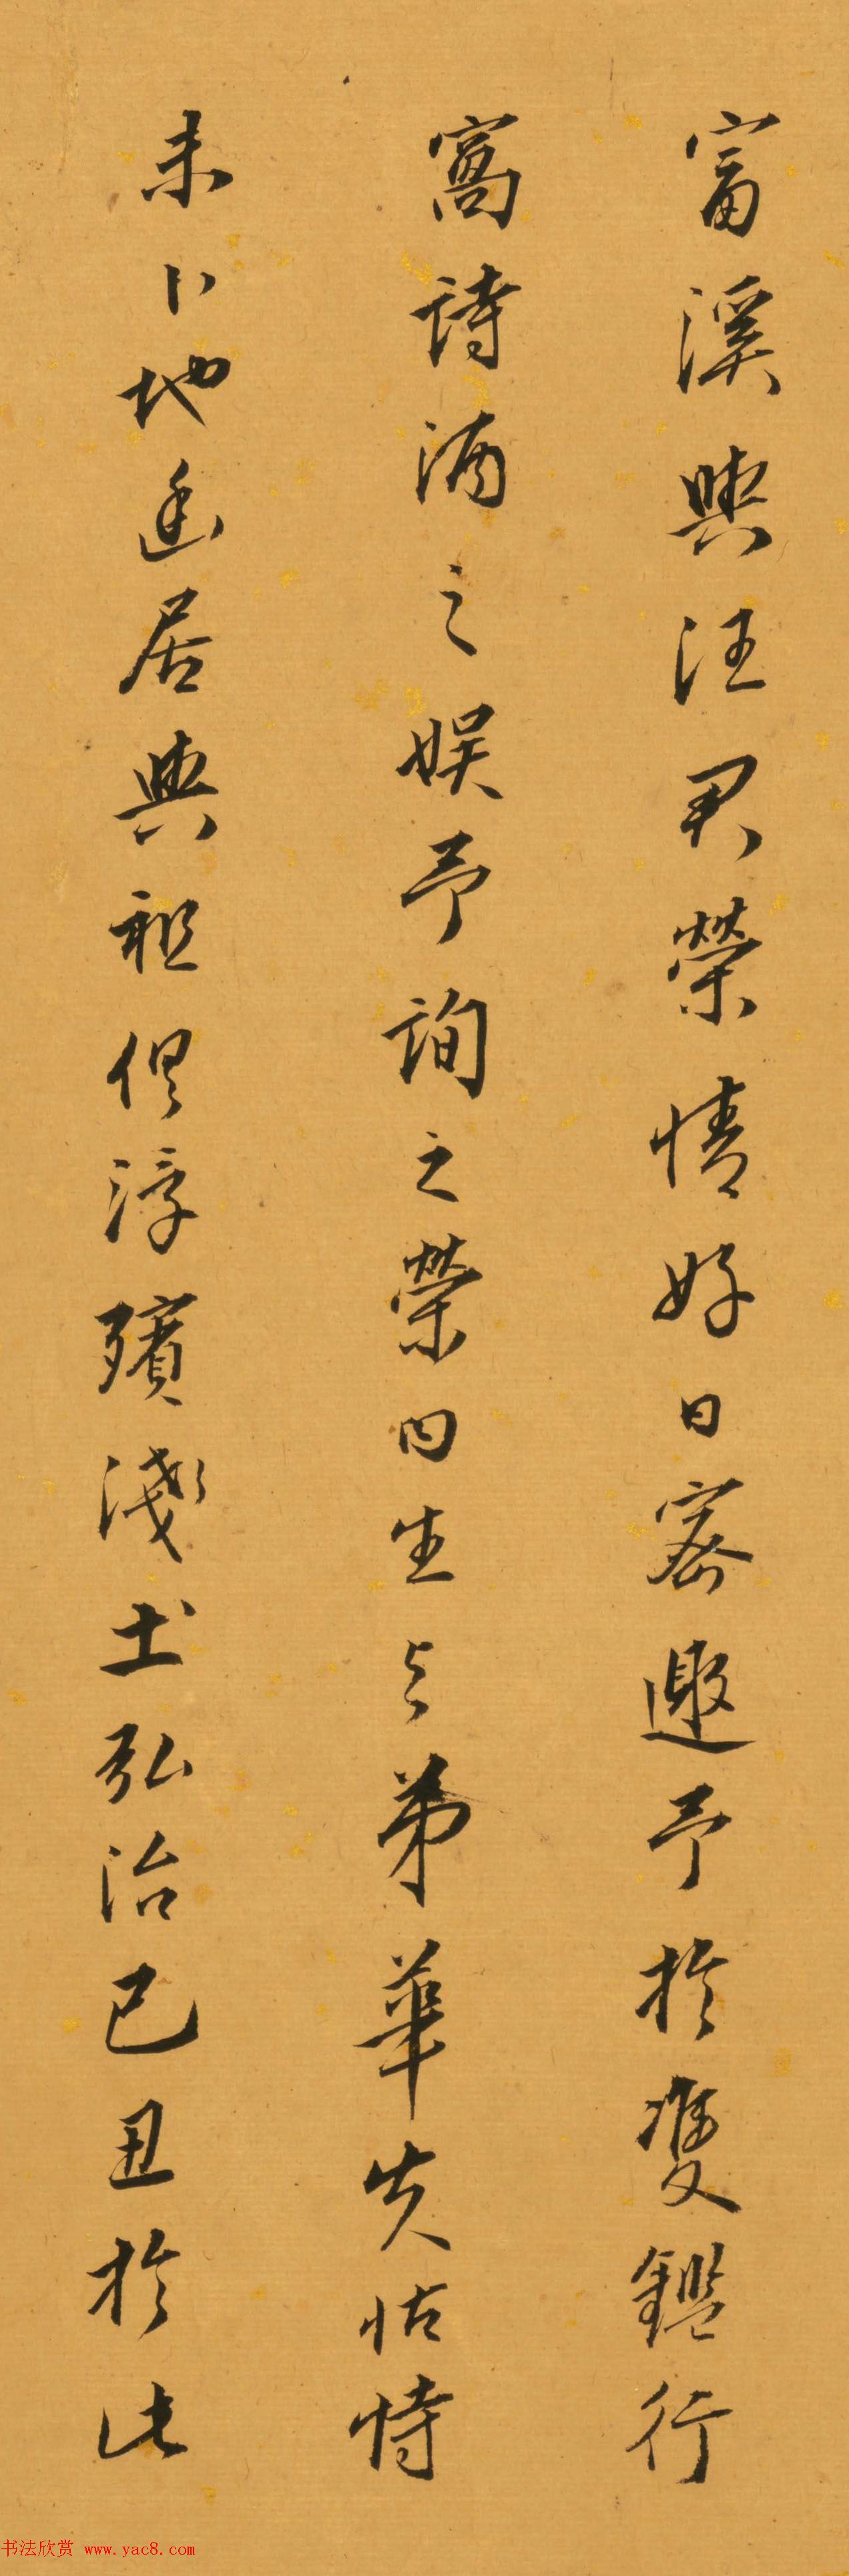 富溪與汪君榮情好日密邀予於雙鑑行
窩詩酒之娛予詢之榮曰生与弟華失怙恃
未卜地幽居與祖俱浮殯淺土弘治己丑於此
书法欣赏 www.yac8.com